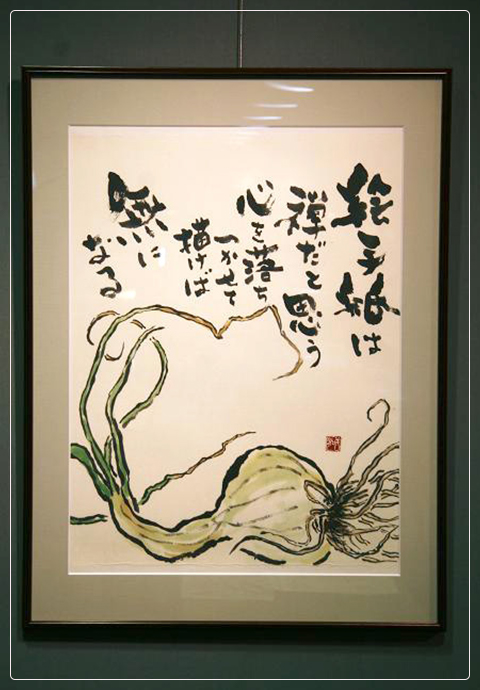 絵手紙は
禅だと思う
心を落ち
つかせて
描けば
無に
なる